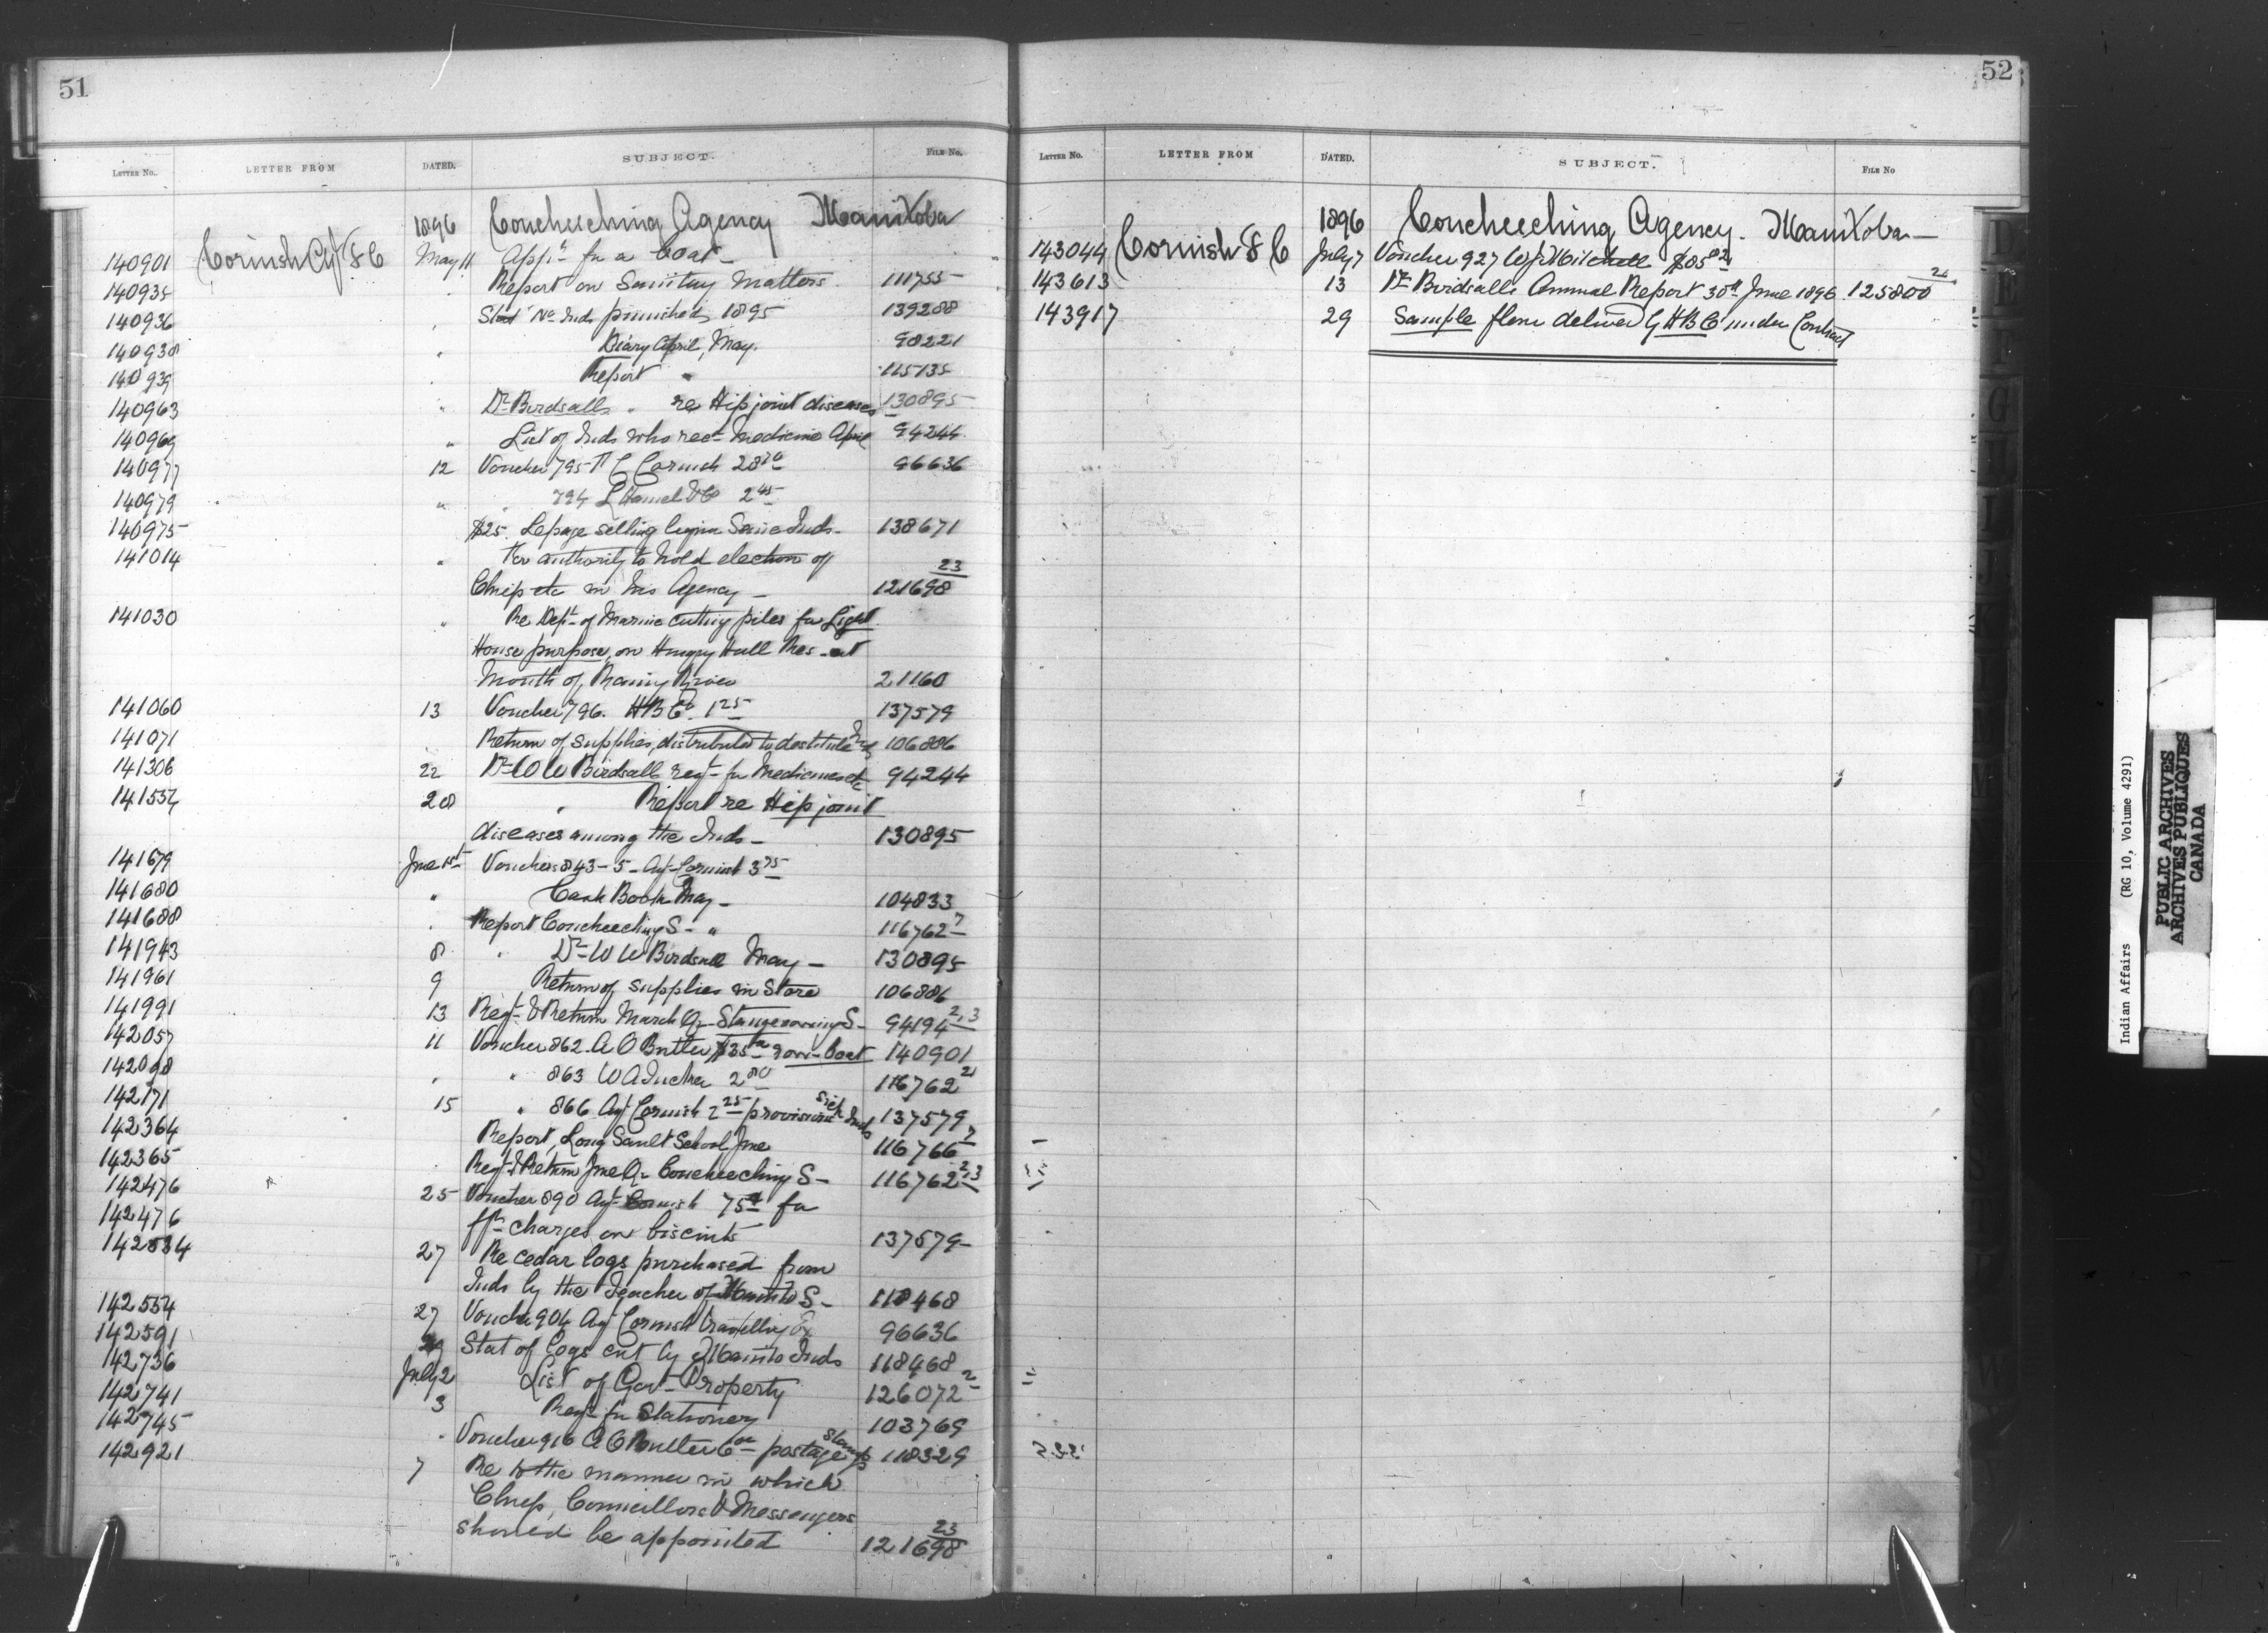 51
LETTER NO. LETTER FROM DATED. SUBJECT. FILE NO.
1896 Coucheeching Agency Manitoba
140901 Cornish Agt F C May 11 Appn for a boat
140935 " Report on Sanitary Matters 111755
140936 " Stat No Inds punished 1895 139288
140938 " Diary April, May. 98221
140939 " Report " 115135
140963 " Dr Birdsalls " re Hip joint diseases 130895
140969 " List of Inds who recd Medicine April 94244
140977 12 Voucher 795 F C Cornish 28 96636
140979 " " 794 L Hamel & Co 2 45
140975 $25. Lepage selling liquor Same Inds 138671
141014 " For authority to hold election of
Chief etc in his Agency 121698 23
141030 " Re Dept of Marine cutting piles for Light
House purpose, on Hungry Hall Res at
Mouth of Rainy River 21160
141060 13 Voucher 796. HBCo 1 25 137579
141071 Return of supplies, distributed to destitute Inds 106886
141306 22 Dr W W Birdsall reqt for Medicines etc 94244
141554 28 " Report re Hip joint
diseases among the Inds 130895
141679 June 1st Vouchers 843-5 Agt Cornish 3 75
141680 " Cash Book May 104833
141688 " Report Coucheeching S " 116762 7
141943 8 " Dr W W Birdsall May 130895
141961 9 Return of supplies in Store 106886
141991 13 Reqt & Return March Qr S 94194 2,3
142057 11 Voucher 862. A O Butler $35 row-boat 140901
142098 " " 863 W A 2 80 116762 21
142171 15 " 866 Agt Cornish 2 25 provisions sick Inds 137579
142364 Report, Long Sault School June 116766 7
142365 Reqt & Return June Qr Coucheeching S 116762 2,3
142476 25 Voucher 890 Agt Cornish 75 for
142476 frt charges on biscuits 137579
142534 27 Re cedar logs purchased from
Inds by the Teacher of Manito S 118468
142554 27 Voucher 904 Agt Cornish travelling Ex 96636
142591 29 Stat of logs cut by Manito Inds 118468
142736 July 2 List of Govt Property 126072 2
142741 3 Reqt for Stationery 103769
142745 " Voucher 916 A O Butler 6 postage stamps 118329
142921 7 Re to the manner in which
Chief, Councillors & Messengers
should be appointed 121698 23
52
LETTER NO. LETTER FROM DATED. SUBJECT. FILE NO
1896 Coucheeching Agency. Manitoba
143044 Cornish F C July 7 Voucher 927 W J Mitchell $85
143613 13 Dr Birdsalls Annual Report 30th June 1896 125800 21
143917 29 Sample flour delivered by HBC under Contract
Indian Affairs (RG 10, Volume 4291)
PUBLIC ARCHIVES
ARCHIVES PUBLIQUES
CANADA